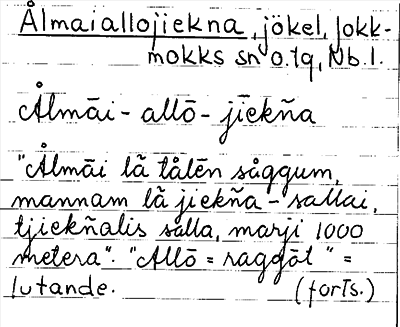 Ålmaiallojiekna, jökel, Jokk-
mokks sn o. tq, Nb. l.
Ålmāi - allō - jīekña
"Ålmāi lā̃ tålēn såggum,
mannam lā̃ jiekña - sallai,
tjiekñalis salla, marji 1000
metera". "Allō = raggōt" =
lutande. (forts.)